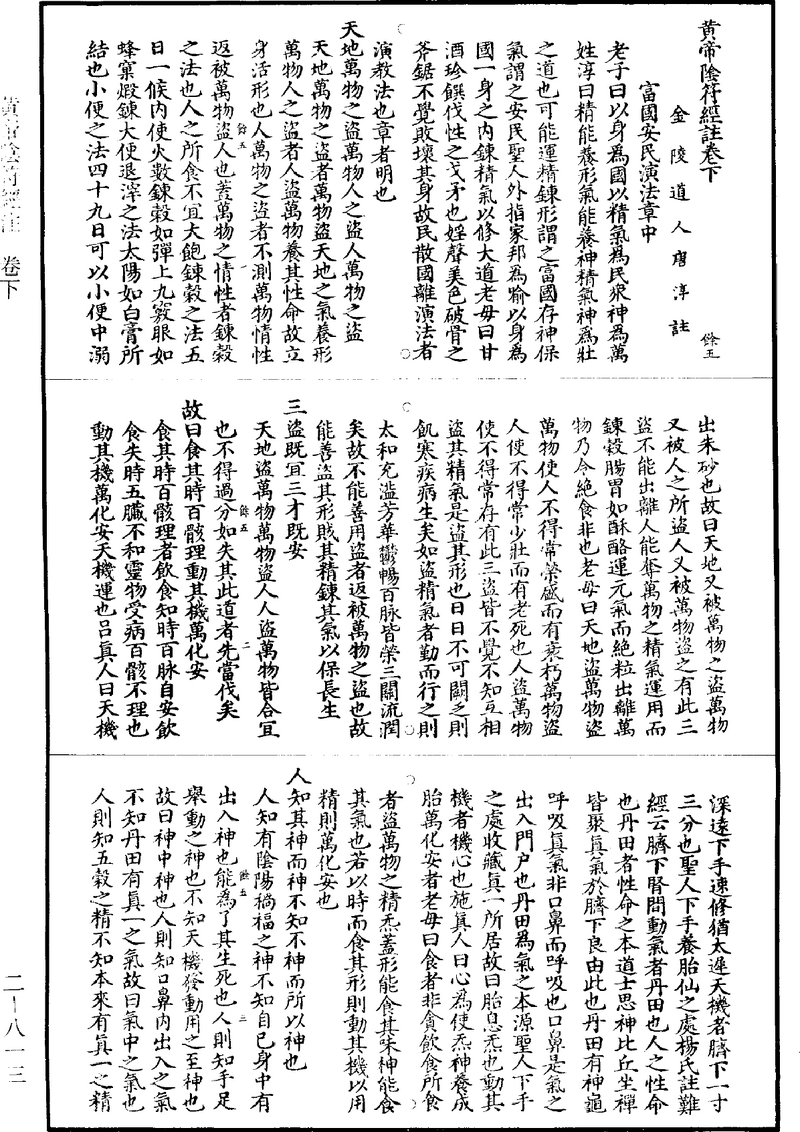 黃帝陰符經註卷下
金陵道人唐淳註
餘五
富國安民演法章中
老子曰以身爲國以精氣爲民衆神爲萬
姓淳曰精能養形氣能養神精氣神爲壯
之道也可能運精鍊形謂之富國存神保
氣謂之安民聖人外指家邦爲喻以身爲
國一身之內鍊精氣以修大道老母曰甘
酒珍饌伐性之戈矛也婬聲美色破骨之
斧鋸不覺敗壞其身故民散國離演法者
演教法也章者明也
天地萬物之盜萬物人之盜人萬物之盜
天地萬物之盜者萬物盜天地之氣養形
萬物人之盜者人盜萬物養其性命故立
身活形也人萬物之盜者不測萬物情性
返被萬物盜人也蓋萬物之情性者鍊穀
之法也人之所食不宜大飽鍊穀之法五
日一候內使火數鍊穀如彈上九竅眼如
蜂窠煅鍊大便退滓之法太陽如白膏所
結也小便之法四十九日可以小便中溺
出朱砂也故曰天地又被萬物之盜萬物
又被人之所盜人又被萬物盜之有此三
盜不能出離人能奪萬物之精氣運用而
鍊穀腸胃如酥酪運元氣而絕粒出離萬
物乃令絕食非也老母曰天地盜萬物盜
萬物使人不得常榮盛而有衰朽萬物盜
人使不得常少壯而有老死也人盜萬物
使不得常存有此三盜皆不覺不知互相
盜其精氣是盜其形也日日不可闕乏則
飢寒疾病生矣如盜精氣者勤而行之則
太和充溢芳華鬱暢百脉皆榮三關流潤
矣故不能善用盜者返被萬物之盜也故
能善盜其形賊其精鍊其氣以保長生
三盜既宜三才既安
天地盜萬物萬物盜人人盜萬物皆合宜
也不得過分如失其此道者先當伐矣
餘五 二
故曰食其時百骸理動其機萬化安
食其時百骸理者飲食知時百脉自安飲
食失時五臟不和靈物受病百骸不理也
動其機萬化安天機運也呂眞人曰天機
深遠下手速修猶太遲天機者臍下一寸
三分也聖人下手養胎仙之處楊氏註難
經云臍下腎間動氣者丹田也人之性命
也丹田者性命之本道士思神比丘坐禪
皆聚眞氣於臍下良由此也丹田有神龜
呼吸眞氣非口鼻而呼吸也口鼻是氣之
出入門户也丹田爲氣之本源聖人下手
之處收藏眞一所居故曰胎息炁也動其
機者機心也施眞人曰心爲使炁神養成
胎萬化安者老母曰食者非貪飲食所食
者盜萬物之精炁蓋形能食其味神能食
其氣也若以時而食其形則動其機以用
精則萬化安也
人知其神而神不知不神而所以神也
人知有陰陽禍福之神不知自已身中有
出入神也能爲了其生死也人則知手足
餘五 三
舉動之神也不知天機發動用之至神也
故曰神中神也人則知口鼻內出入之氣
不知丹田有眞一之氣故曰氣中之氣也
人則知五穀之精不知本來有眞一之精
黃帝陰符經注 卷下
二—八一三